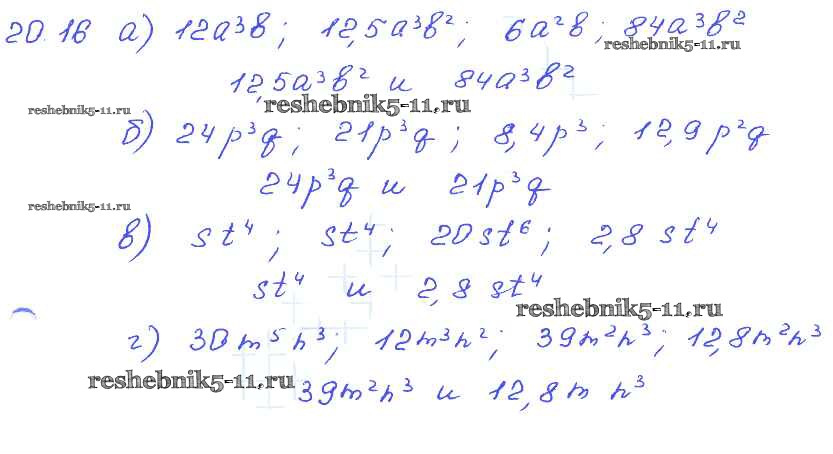 20.16 а) 12a³b; 12,5a³b²; 6a²b; 84a³b²
reshebnik5-11.ru
12,5a³b² и 84a³b²
reshebnik5-11.ru
reshebnik5-11.ru
б) 24p³q; 21p³q; 8,4p³; 12,9p²q
24p³q и 21p³q
reshebnik5-11.ru
в) st⁴; st⁴; 20st⁶; 2,8 st⁴
st⁴ и 2,8 st⁴
reshebnik5-11.ru
г) 30m⁵n³; 12m³n²; 39m²n³; 12,8m²n³
reshebnik5-11.ru
39m²n³ и 12,8m n³